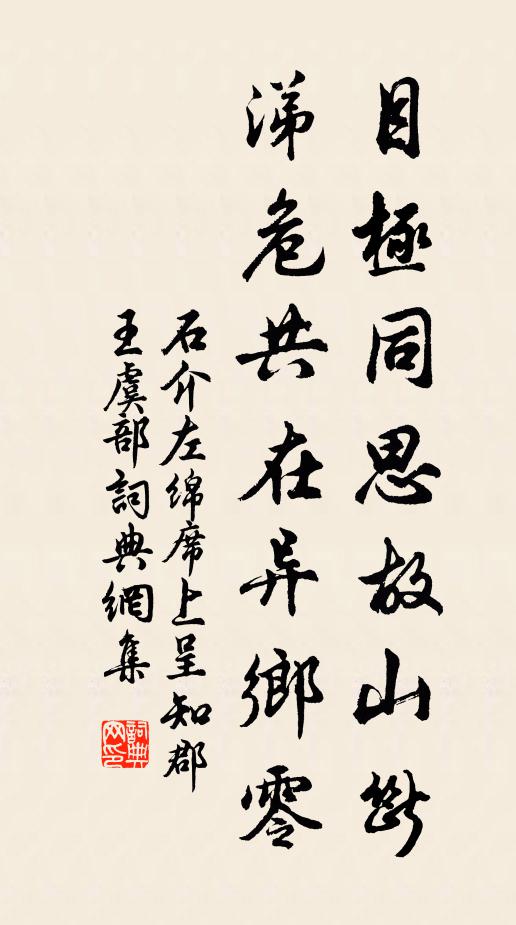 目極同思故山斷
涕危共在异鄉零
石介左綿席上呈知郡
王虞部詞典網集
詞典
网印